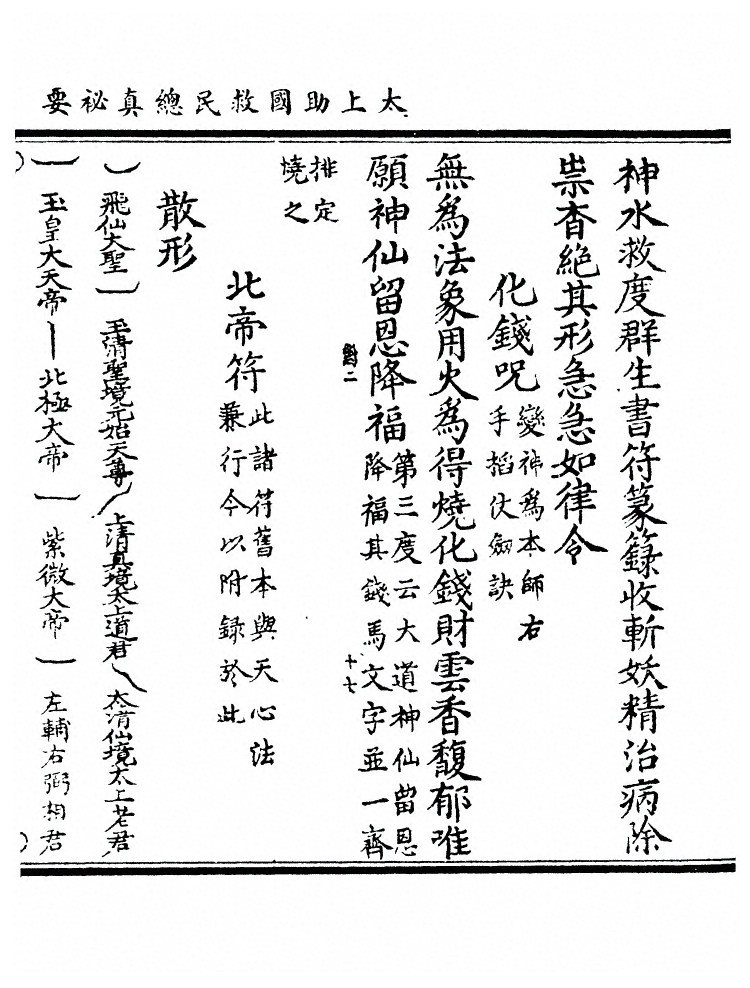 太上助國救民總真祕要
神水救度群生書符篆籙收斬妖精治病除
祟杳絕其形急急如律令
化錢呪
變神爲本師右
手掐仗劒訣
無爲法象用火爲得燒化錢財雲香馥郁唯
願神仙留恩降福
第三度云大道神仙留恩
降福其錢馬文字並一齊
十七
排定
燒之
北帝符
此諸符舊本與天心法
兼行今以附錄於此
散形
飛仙大聖 玉清聖境元始天尊 上清真境太上道君 太清仙境太上老君
玉皇大天帝 北極大帝 紫微大帝 左輔右弼相君